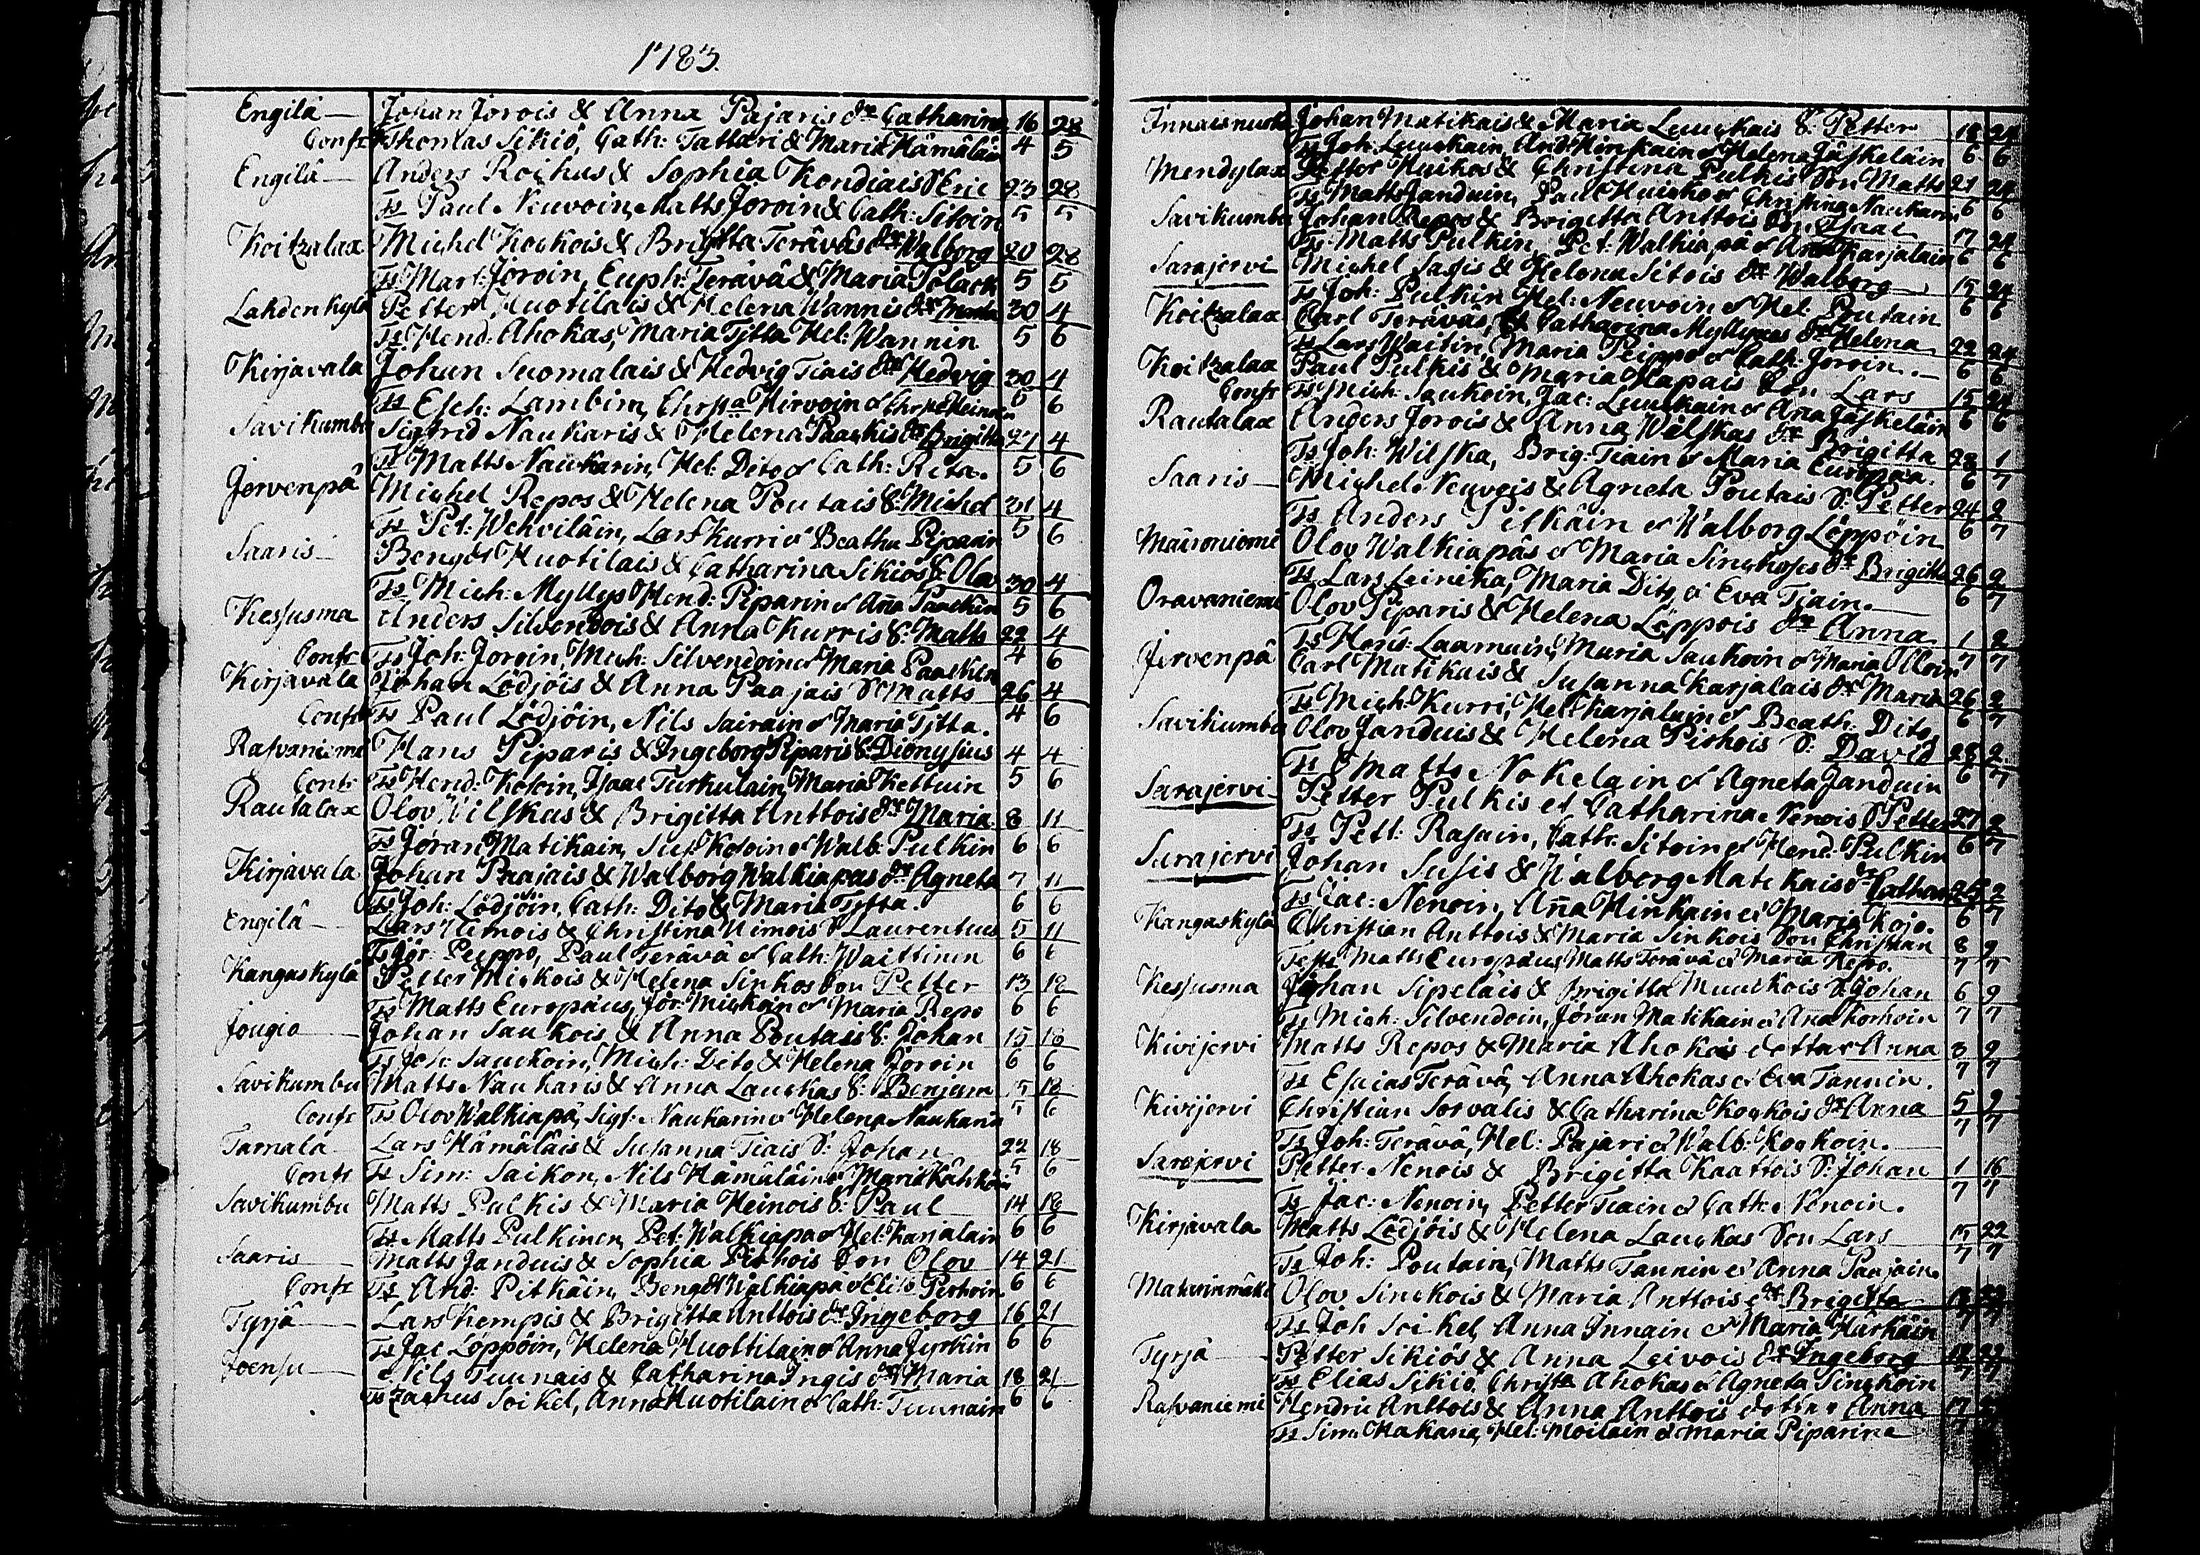 1783.
Engilä — Johan Jorois & Anna Pajaris dr Catharina 16 28
Conft Ts Thomas Sikiö, Cath: Tattari & Maria Hämäläin 4 5
Engilä — Anders Roikus & Sophia Kondiais S Eric 23 28
Ts Paul Neuvoin, Matts Joroin & Cath: Sitoin 5 5
Koitzalax Michel Kockois & Brigitta Teräväs dr Walborg 20 28
Ts Mart: Joroin, Euph: Terävä & Maria Polack 5 5
Lahdenkylä Petter Huotilais & Helena Wannis dr 30 4
Ts Hend: Ahokas, Maria Tjtta Hel: Wannin 5 6
Kirjavala Johan Suomalais & Hedvig Tiais dr Hedvig 30 4
Ts Esch: Lambin, Chrsta Hirvoin & Chrst Heinoin 5 6
Savikumbu Sigfrid Naukaris & Helena Paaskis dr Brigitta 27 4
Ts Matts Naukarin, Hel: Dito & Cath: Rita. 5 6
Jervenpä Michel Repos & Helena Poutais S: Michel 31 4
Ts Pet: Wehviläin, Lars Kurri & Beatha Piparin 5 6
Saaris — Bengt Huotilais & Catharina Sikiös S: Olov 30 4
Ts Mich: Myllys Hend: Piparin & Aña Paaskin 5 6
Kessusma Anders Silvendois & Anna Kurris S: Matts 22 4
Conft Ts Joh: Joroin, Mich: Silvendoin & Maria Paaskin 4 6
Kirjavala Johan Lödjöis & Anna Paajais S Matts 26 4
Conft Ts Paul Lödjöin, Nils Sairain & Maria Tjtta. 4 6
Rasvaniemi Hans Piparis & Ingeborg Piparis S: Dionysius 4 4
Conft Ts Hend: Kosoin, Isaac Turkulain, Maria Kettuin 5 6
Rautalax Olov Wilskas & Brigitta Anttois dr Maria 8 11
Ts Jöran Matikain, Sus: Kosoin & Walb: Pulkin 6 6
Kirjavala Johan Paajais & Walborg Walkiapas dr Agneta 7 11
Ts Joh: Lödjöin, Cath: Dito & Maria Tjtta. 6 6
Engilä — Lars Nemois & Christina Nemois S Laurentius 5 11
Ts Jör: Peippo, Paul Terävä & Cath: Waittinen 6 6
Kangaskylä Petter Mickois & Helena Sinkos Son Petter 13 18
Ts Matts Europæus, Jör: Mickoin & Maria Repo 6 6
Jougio — Johan Saukois & Anna Poutais S: Johan 15 18
Ts Joh: Sauckoin, Mich: Dito & Helena Joroin 6 6
Savikumbu Matts Naukaris & Anna Lauckas S: Benjam 5 18
Conft Ts Olov Walkiapä, Sigf: Naukarin & Helena Naukarin 5 6
Tamala — Lars Hämäläis & Susanna Tiais S: Johan 22 18
Conft Ts Sim: Saikon, Nils Hämäläin & Maria 5 6
Savikumbu Matts Pulkis & Maria Heinois S: Paul 14 18
Ts Matts Pulkinen, Pet: Walkiapä & Hel: Karjalain 6 6
Saaris — Matts Janduis & Sophia Pirhois Son Olov 14 21
Conft Ts And: Pitkäin, Bengt Walkiapä & Elis: Pirhoin 6 6
Tyrjä — Lars Kempis & Brigitta Anttois dr Ingeborg 16 21
Ts Jac: Löppöin, Helena Huottilain & Anna Jyrkin 6 6
Joensu — Nils Tuunais & Catharina Ingis dr Maria 18 21
Ts Zachus Soikel, Anna Huotilain & Cath: Tuunain 6 6
Johan Matikais & Maria Lauckais S: Petter 18 24
Ts Joh: Lauckain, And: Hinkain & Helena Jäskeläin 6 6
Mendylax Petter Huikos & Christina Pulkis Son Matts 21 24
Ts Matts Janduin, Paul Huicko & Christina Naukarin 6 6
Savikumbu Johan Repos & Brigitta Anttois Son Isaac 17 24
Ts Matts Pulkin, Pet: Walkiapä & Karjalain 6 6
Sarajervi Michel Sasis & Helena Sitois dr Walborg 15 24
Ts Joh: Pulkin, Hel: Neuvoin & Hel: Poutain 6 6
Koitzalax Carl Teräväs, & Catharina Myllynes dr Helena 22 24
Ts Lars Waitin, Maria Peippo & Cath: Joroin. 6 6
Koitzalax Paul Pulkis & Maria Hapais Son Lars 15 24
Conft Ts Mich: Saukoin, Jac: Luukkain & Aña Jäskeläin 6 6
Rautalax Anders Jorois & Anna Wilskas dr Brigitta 28 1
Ts Joh: Wilska, Brig: Tiain & Maria Europæa. 6 7
Saaris — Michel Neuvois & Agneta Poutais S: Petter 24 2
Ts Anders Pitkäin & Walborg Löppöin 6 7
Olov Walkiapäs & Maria Sinckoses dr Brigitta 26 2
Ts Lars Leinika, Maria Dito & Eva Tiain. 6 7
Oravaniemi Olov Piparis & Helena Löppois dr Anna 1 2
Ts Hans: Laamain, Maria Saukoin & Maria 7 7
Jervenpä Carl Matikais & Susanna Karjalais dr Maria 26 2
Ts Mich Kurri, Hel: Karjalain & Beath: Dito 6 7
Savikumbu Olov Janduis & Helena Pirhois S: David 28 2
Ts Matts Nokelain & Agneta Janduin 6 7
Sarajervi Petter Pulkis & Catharina Nenois S Petter 27 2
Ts Pett: Rasain, Cath: Sitoin & Hend: Pulkin 6 7
Sarajervi Johan Susis & Walborg Matikais dr Cathar 25 2
Ts Jac: Nenoin, Aña Hinkain & Maria Kojo. 6 7
Kangaskylä Christian Anttois & Maria Sinkois Son Christian 8 9
Tests Matts Europæus, Matts Terävä & Maria Repo. 7 7
Kessusma Johan Sipeläis & Brigitta Muuckois S: Johan 6 9
Ts Mich: Silvendoin, Jöran Matikain & Aña Korhoin 7 7
Kivijervi Matts Repos & Maria Ahokas dotter Anna 3 9
Ts Esaias Terävä, Anna Ahokas & Eva Tannin. 7 7
Kivijervi Christian Sorvalis & Catharina Kockois dr Anna 5 9
Ts Joh: Terävä, Hel: Pajari & Walb: Kockoin. 7 7
Sarajervi Petter Nenois & Brigitta Kaattois S: Johan 1 16
Ts Jac: Nenoin, Petter Tiain & Cath: Nenoin. 7 7
Kirjavala Matts Lödjöis & Helena Lauckas Son Lars 15 22
Ts Joh: Poutain, Matts Tannin & Anna Paajain. 7 7
Olov Sinckois & Maria Anttois dr Brigitta
Ts Joh Soikel, Anna Innain & Maria Härkäin
Tyrjä — Petter Sikiös & Anna Leivois dr Ingeborg
Ts Elias Sikiö, Christa Ahokas & Agneta Sinckoin
Rasvaniemi Hendric Anttois & Anna Anttois dotter Anna
Ts Sim: Makaria, Hel: Moilain & Maria Piparina